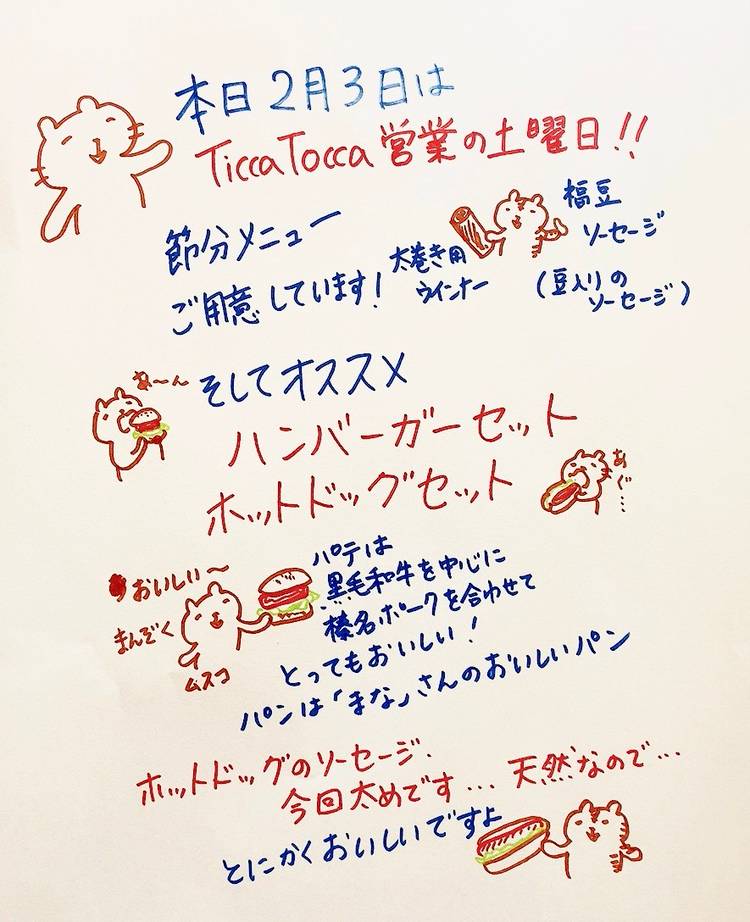 本日2月3日は
TiccaTocca営業の土曜日!!
節分メニュー
ご用意しています!
太巻き用
ウインナー
福豆
ソーセージ
(豆入りの
ソーセージ)
あ〜ん
そしてオススメ
ハンバーガーセット
ホットドッグセット
あぐ…
おいしい〜
まんぞく
ムスコ
パテは
黒毛和牛を中心に
榛名ポークを合わせて
とってもおいしい!
パンは「まな」さんのおいしいパン
ホットドッグのソーセージ.
今回太めです…天然なので…
とにかくおいしいですよ